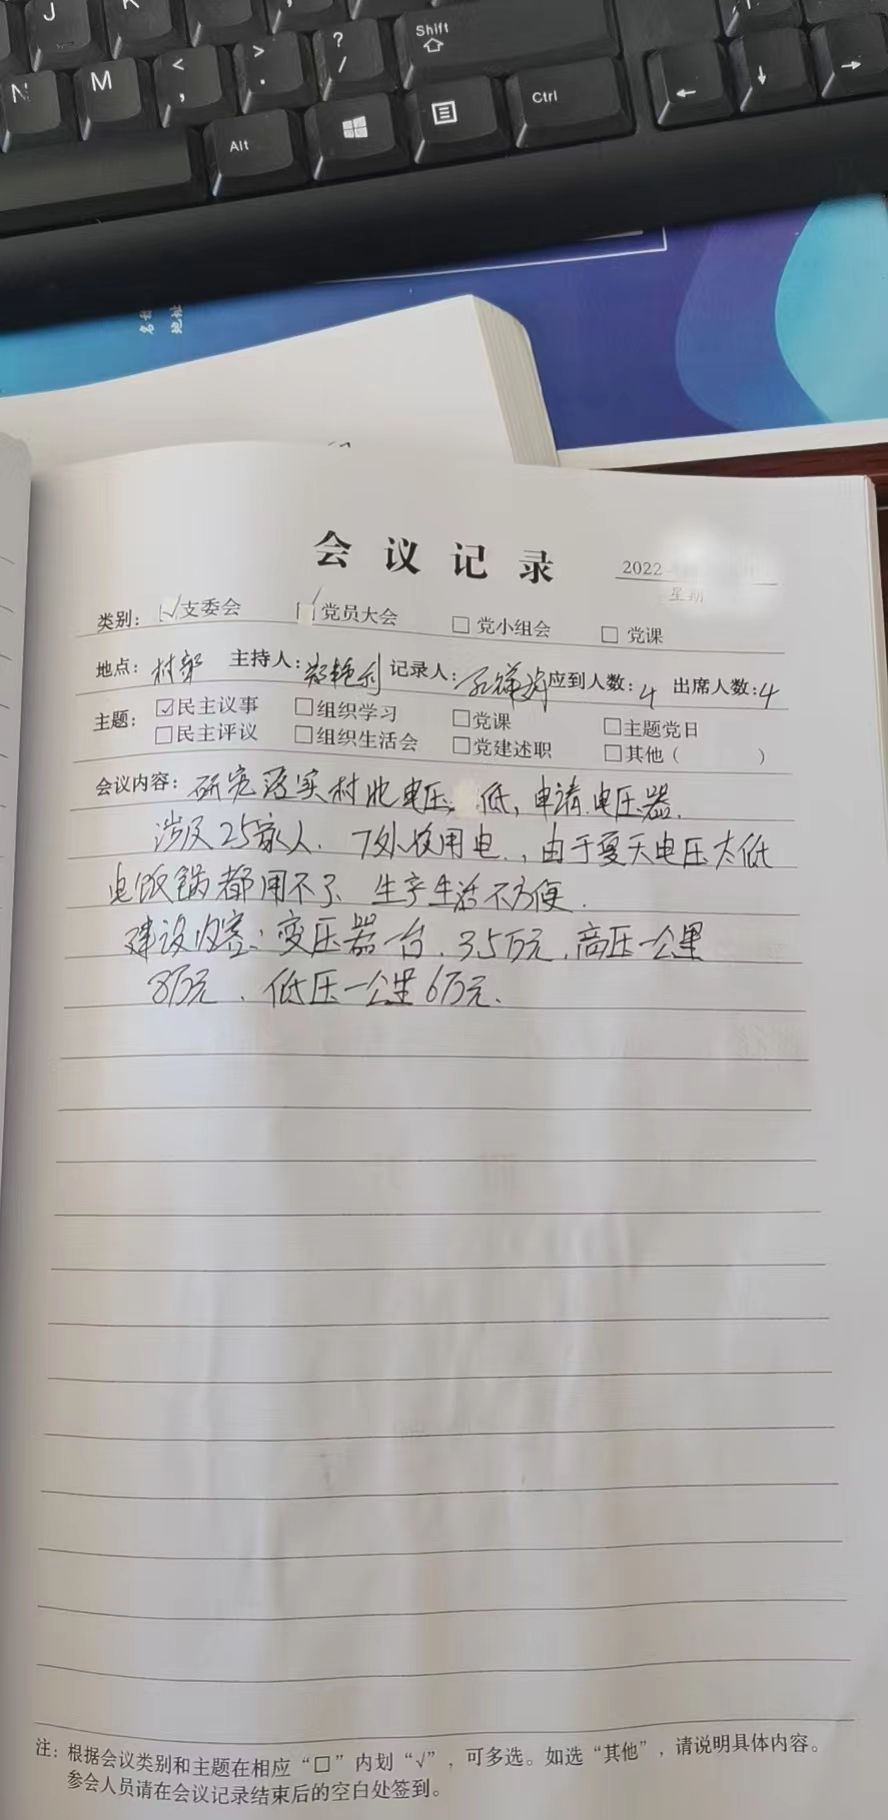 J
K
Shift
N
M
<
,
>
.
?
/
Ctrl
←
↓
→
Alt
地址
会议记录
2022
星期
类别： ✓支委会 ✓党员大会 □党小组会 □党课
地点：村部 主持人： 艳利 记录人： 应到人数：4 出席人数：4
主题： ☑民主议事 □组织学习 □党课 □主题党日
□民主评议 □组织生活会 □党建述职 □其他（ ）
会议内容：研究落实村北电压 低，申请电压器.
涉及25家人. 7处 用电.，由于夏天电压太低
电饭锅都用不了、生产生活不方便.
建设内容：变压器一台.3.5万元.高压一公里
8万元.低压一公里6万元.
注：根据会议类别和主题在相应“□”内划“√”，可多选。如选“其他”，请说明具体内容。
参会人员请在会议记录结束后的空白处签到。